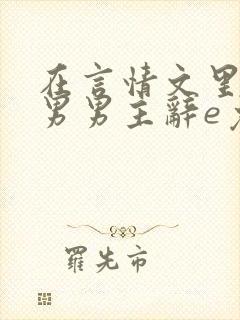 在言情文里
男男主辞e
羅先市